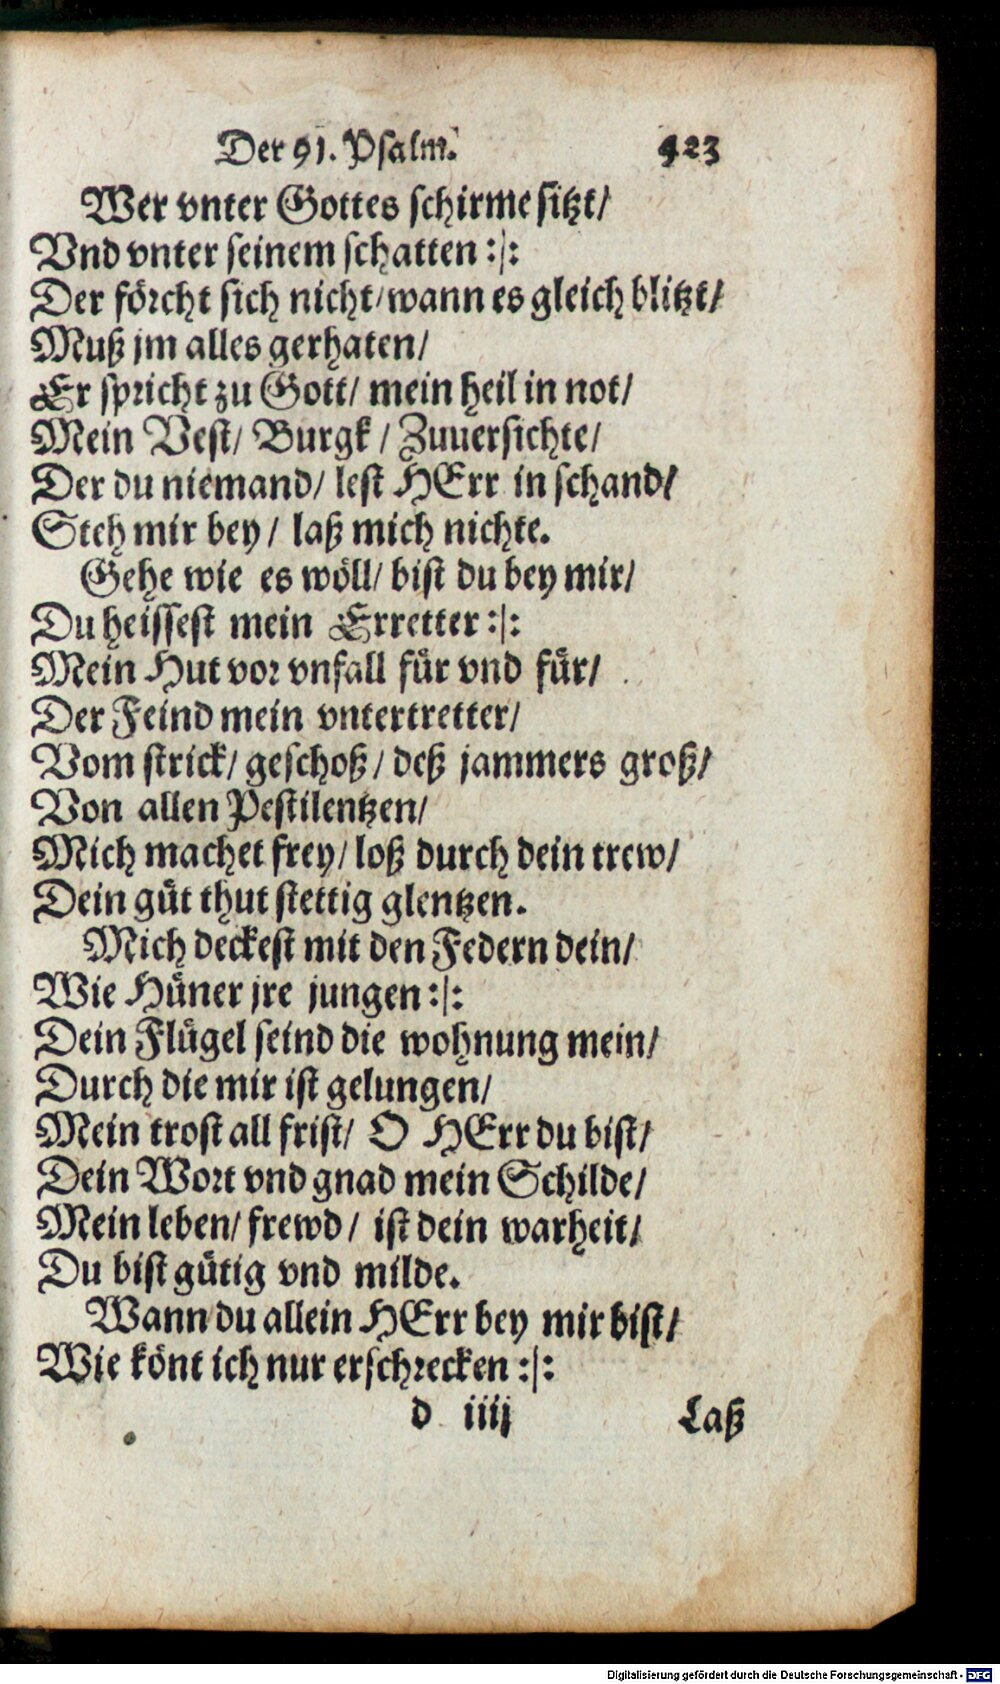 Der 91. Psalm. 423
Wer vnter Gottes schirme sitzt/
Vnd vnter seinem schatten :|:
Der förcht sich nicht/ wann es gleich blitzt/
Muß jm alles gerhaten/
Er spricht zu Gott/ mein heil in not/
Mein Vest/ Burgk / Zuuersichte/
Der du niemand/ lest HErr in schand/
Steh mir bey / laß mich nichte.
Gehe wie es wöll/ bist du bey mir/
Du heissest mein Erretter :|:
Mein Hut vor vnfall für vnd für/
Der Feind mein vntertretter/
Vom strick/ geschoß / deß jammers groß/
Von allen Pestilentzen/
Mich machet frey/ loß durch dein trew/
Dein güt thut stettig glentzen.
Mich deckest mit den Federn dein/
Wie Hüner jre jungen :|:
Dein Flügel seind die wohnung mein/
Durch die mir ist gelungen/
Mein trost all frist/ O HErr du bist/
Dein Wort vnd gnad mein Schilde/
Mein leben/ frewd / ist dein warheit/
Du bist gütig vnd milde.
Wann du allein HErr bey mir bist/
Wie könt ich nur erschrecken :|:
d iiij Laß
Digitalisierung gefördert durch die Deutsche Forschungsgemeinschaft - DFG